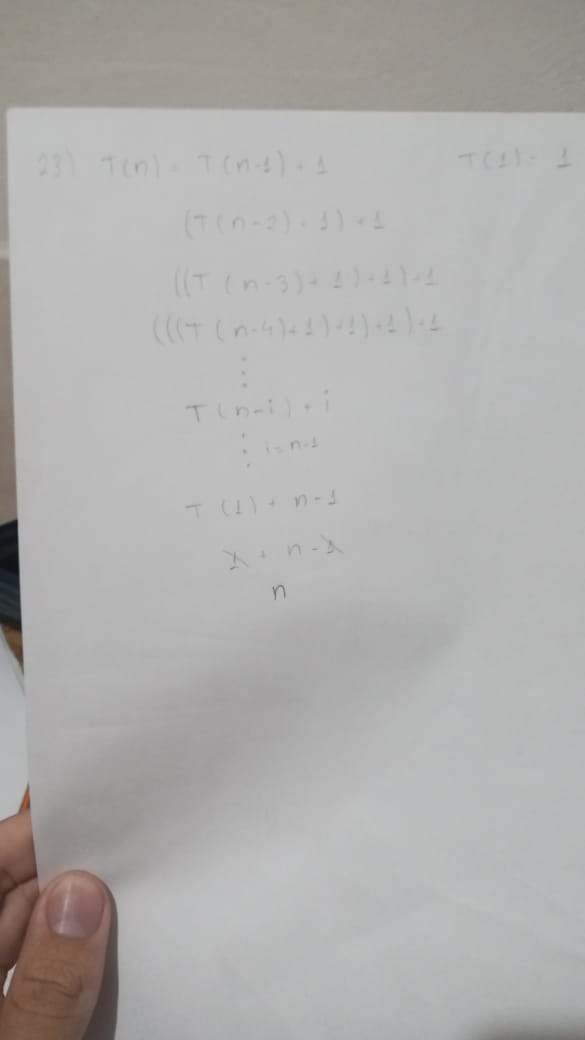 23) T(n) = T(n-1) + 1 T(1) = 1
(T(n-2) + 1) + 1
((T(n-3) + 1) + 1) + 1
(((T(n-4) + 1) + 1) + 1) + 1
⋮
T(n-i) + i
⋮ i = n-1
T(1) + n-1
1 + n - 1
n